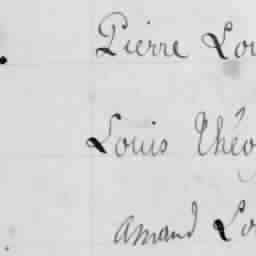 Pierre Lou
Louis Théo
Amand Lo